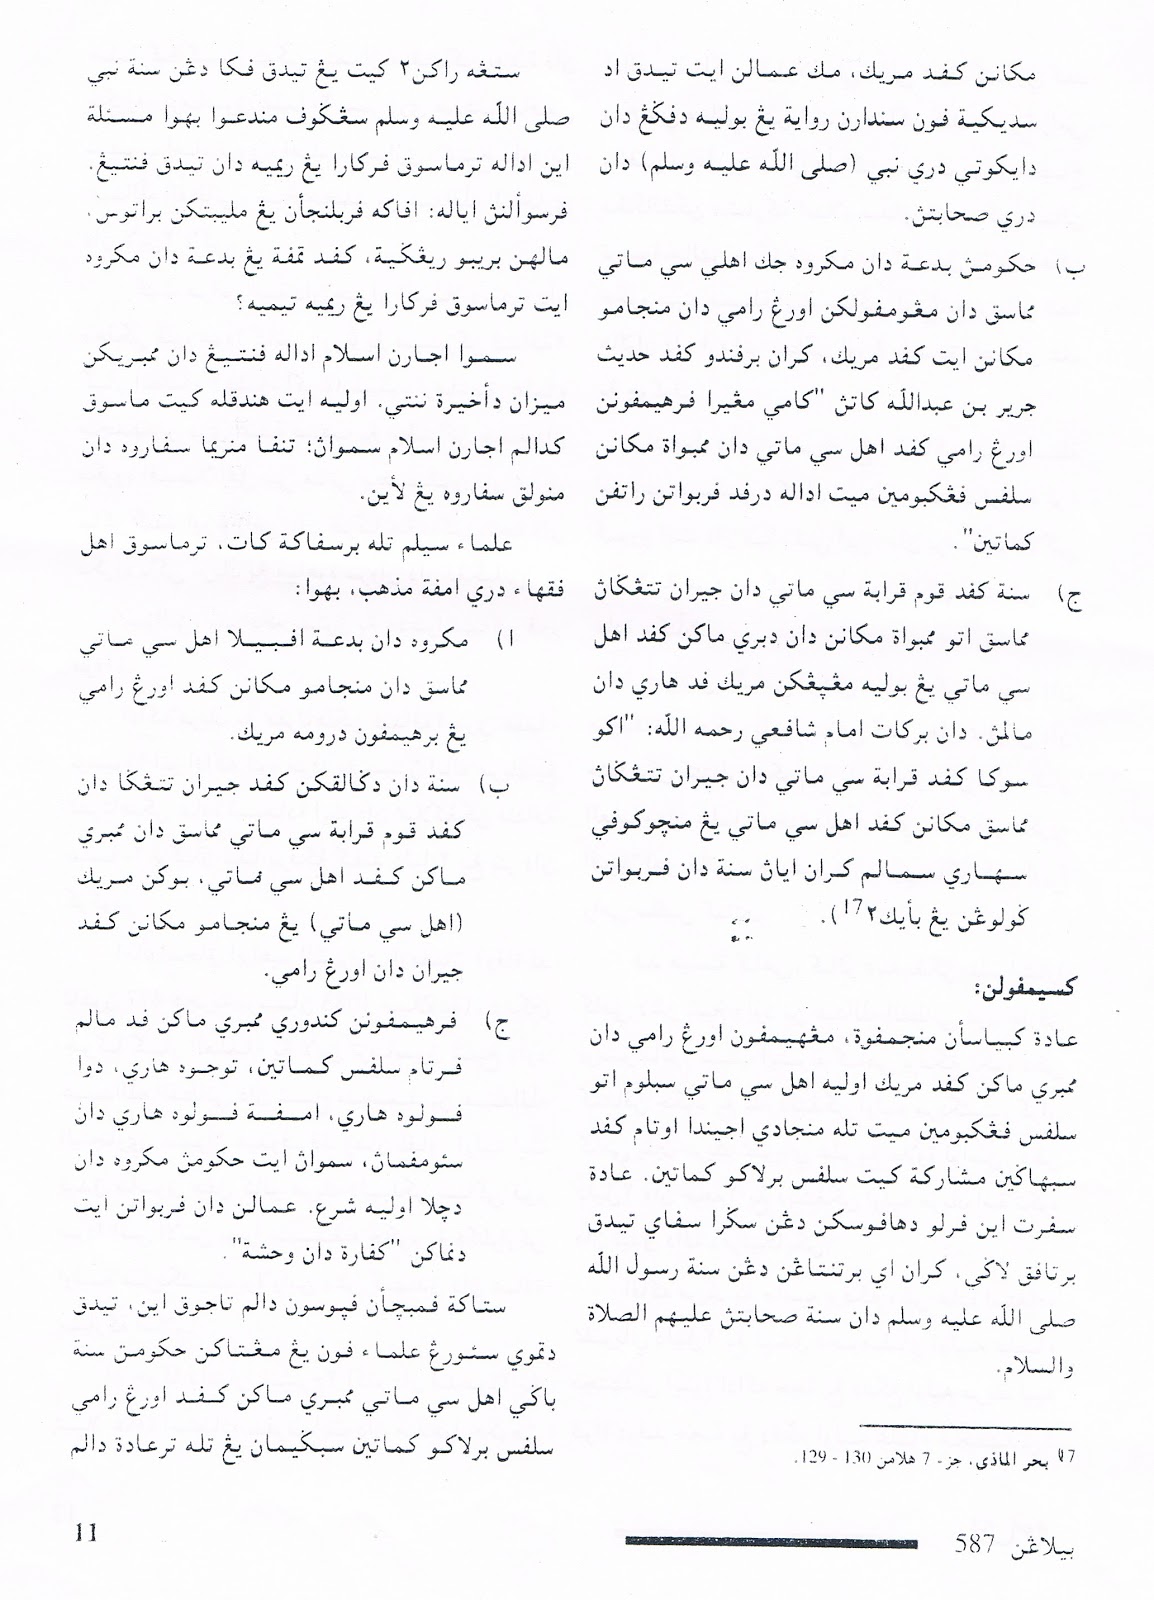 مكانن كفد مريك، مك عمالن ايت تيدق اد
سديكية فون سندارن رواية يڠ بوليه دفݢڠ دان
دايكوتي دري نبي (صلى الله عليه وسلم) دان
دري صحابتڽ.
ب) حكومڽ بدعة دان مكروه جك اهلي سي ماتي
مماسق دان مڠومفولكن اورڠ رامي دان منجامو
مكانن ايت كفد مريك، كران برفندو كفد حديث
جرير بن عبدالله كاتڽ "كامي مڠيرا فرهيمفونن
اورڠ رامي كفد اهل سي ماتي دان ممبواة مكانن
سلفس فڠكبومين ميت اداله درفد فربواتن راتفن
كماتين".
ج) سنة كفد قوم قرابة سي ماتي دان جيران تتڠݢاڽ
مماسق اتو ممبواة مكانن دان دبري ماكن كفد اهل
سي ماتي يڠ بوليه مڠڽڠكن مريك فد هاري دان
مالمڽ. دان بركات امام شافعي رحمه الله: "اكو
سوكا كفد قرابة سي ماتي دان جيران تتڠݢاڽ
مماسق مكانن كفد اهل سي ماتي يڠ منچوكوفي
سهاري سمالم كران اياڽ سنة دان فربواتن
ݢولوڠن يڠ بأيك٢ 17).
كسيمفولن:
عادة كبياسأن منجمفوة، مڠهيمفون اورڠ رامي دان
ممبري ماكن كفد مريك اوليه اهل سي ماتي سبلوم اتو
سلفس فڠكبومين ميت تله منجادي اجيندا اوتام كفد
سبهاݢين مشاركة كيت سلفس برلاكو كماتين. عادة
سفرت اين فرلو دهافوسكن دڠن سݢرا سفاي تيدق
برتافق لاݢي، كران اي برتنتاڠن دڠن سنة رسول الله
صلى الله عليه وسلم دان سنة صحابتڽ عليهم الصلاة
والسلام.
17) بحر الماذى، جز- 7 هلامن 130 - 129.
ستڠه راكن٢ كيت يڠ تيدق فكا دڠن سنة نبي
صلى الله عليه وسلم سڠݢوف مندعوا بهوا مسئلة
اين اداله ترماسوق فركارا يڠ ريميه دان تيدق فنتيڠ.
فرسوألنڽ اياله: افاكه فربلنجأن يڠ مليبتكن براتوس،
مالهن بريبو ريڠݢية، كفد تمفة يڠ بدعة دان مكروه
ايت ترماسوق فركارا يڠ ريميه تيميه؟
سموا اجارن اسلام اداله فنتيڠ دان ممبريكن
ميزان دأخيرة ننتي. اوليه ايت هندقله كيت ماسوق
كدالم اجارن اسلام سمواڽ؛ تنفا منريما سفاروه دان
منولق سفاروه يڠ لأين.
علماء سيلم تله برسفاكة كات، ترماسوق اهل
فقهاء دري امفة مذهب، بهوا:
ا) مكروه دان بدعة افبيلا اهل سي ماتي
مماسق دان منجامو مكانن كفد اورڠ رامي
يڠ برهيمفون درومه مريك.
ب) سنة دان دݢالقكن كفد جيران تتڠݢا دان
كفد قوم قرابة سي ماتي مماسق دان ممبري
ماكن كفد اهل سي ماتي، بوكن مريك
(اهل سي ماتي) يڠ منجامو مكانن كفد
جيران دان اورڠ رامي.
ج) فرهيمفونن كندوري ممبري ماكن فد مالم
فرتام سلفس كماتين، توجوه هاري، دوا
فولوه هاري، امفة فولوه هاري دان
سئومفماڽ، سمواڽ ايت حكومڽ مكروه دان
دچلا اوليه شرع. عمالن دان فربواتن ايت
دنماكن "كفارة دان وحشة".
ستاكة فمبچأن فڽوسون دالم تاجوق اين، تيدق
دتموي سئورڠ علماء فون يڠ مڠتاكن حكومن سنة
باݢي اهل سي ماتي ممبري ماكن كفد اورڠ رامي
سلفس برلاكو كماتين سبݢيمان يڠ تله ترعادة دالم
بيلاڠن 587
11